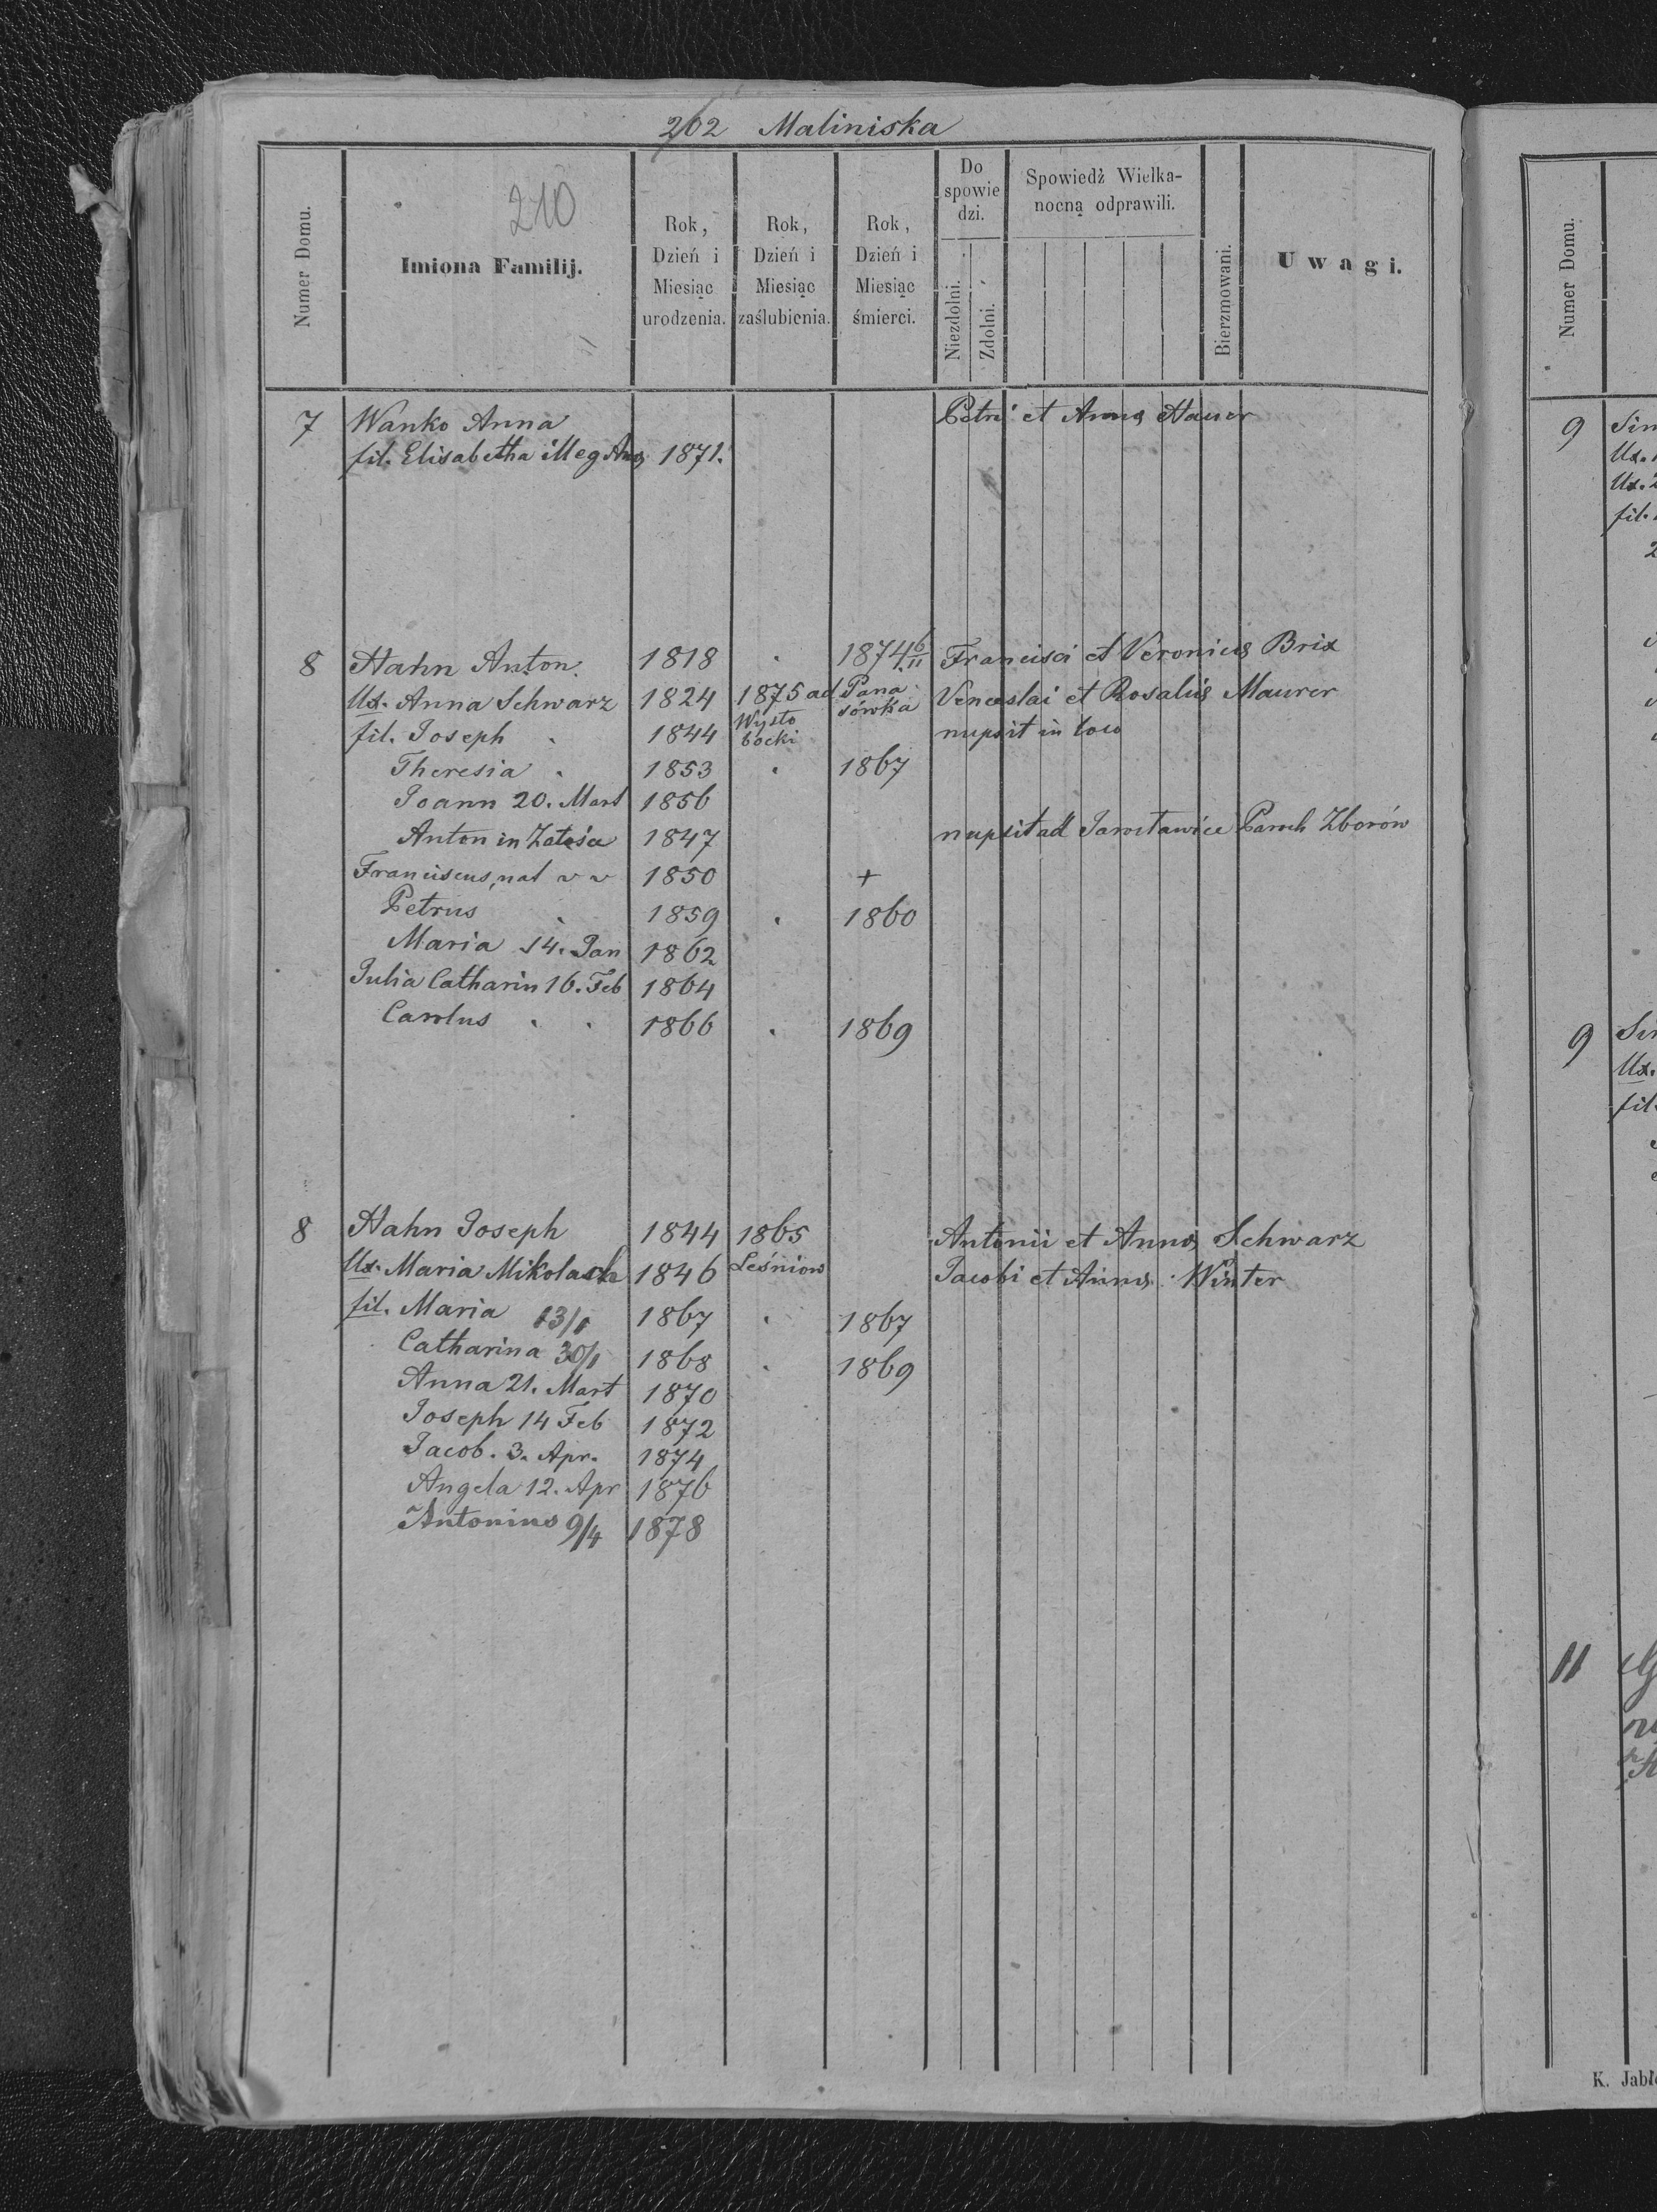 262 Maliniska
210
Numer Domu.
Imiona Familij.
Rok, Dzień i Miesiąc urodzenia.
Rok, Dzień i Miesiąc zaślubienia.
Rok, Dzień i Miesiąc śmierci.
Do spowiedzi.
Niezdolni.
Zdolni.
Spowiedź Wielkanocną odprawili.
Bierzmowani.
Uwagi.
7 Wanko Anna Petri et Annæ Hauer
fil. Elisabetha illeg 1871.
8 Hahn Anton. 1818 1874 6/11 Francisci et Veronicæ Brix
Ux. Anna Schwarz 1824 1875 ad Panasówka Venceslai et Rosaliæ Maurer
fil. Joseph 1844 nupsit in loco
Theresia 1853 1867
Joann 20. Mart 1856
Anton in 1847 nupsit ad Jarosławice Paroch Zborów
Franciscus, nat 1850 +
Petrus 1859 1860
Maria 14. Jan 1862
Julia Catharin 16. Feb 1864
Carolus 1866 1869
8 Hahn Joseph 1844 1865 Antonii et Annæ Schwarz
Ux. Maria Mikolasch 1846 Leśniow Jacobi et Annæ Winter
fil. Maria 13/1 1867 1867
Catharina 30/1 1868 1869
Anna 21. Mart 1870
Joseph 14 Feb 1872
Jacob. 3. Apr. 1874
Angela 12. Apr 1876
Antonius 9/4 1878
Numer Domu.
9
Ux.
Ux. 2
fil.
9
Ux.
fil.
11
K. Jabł